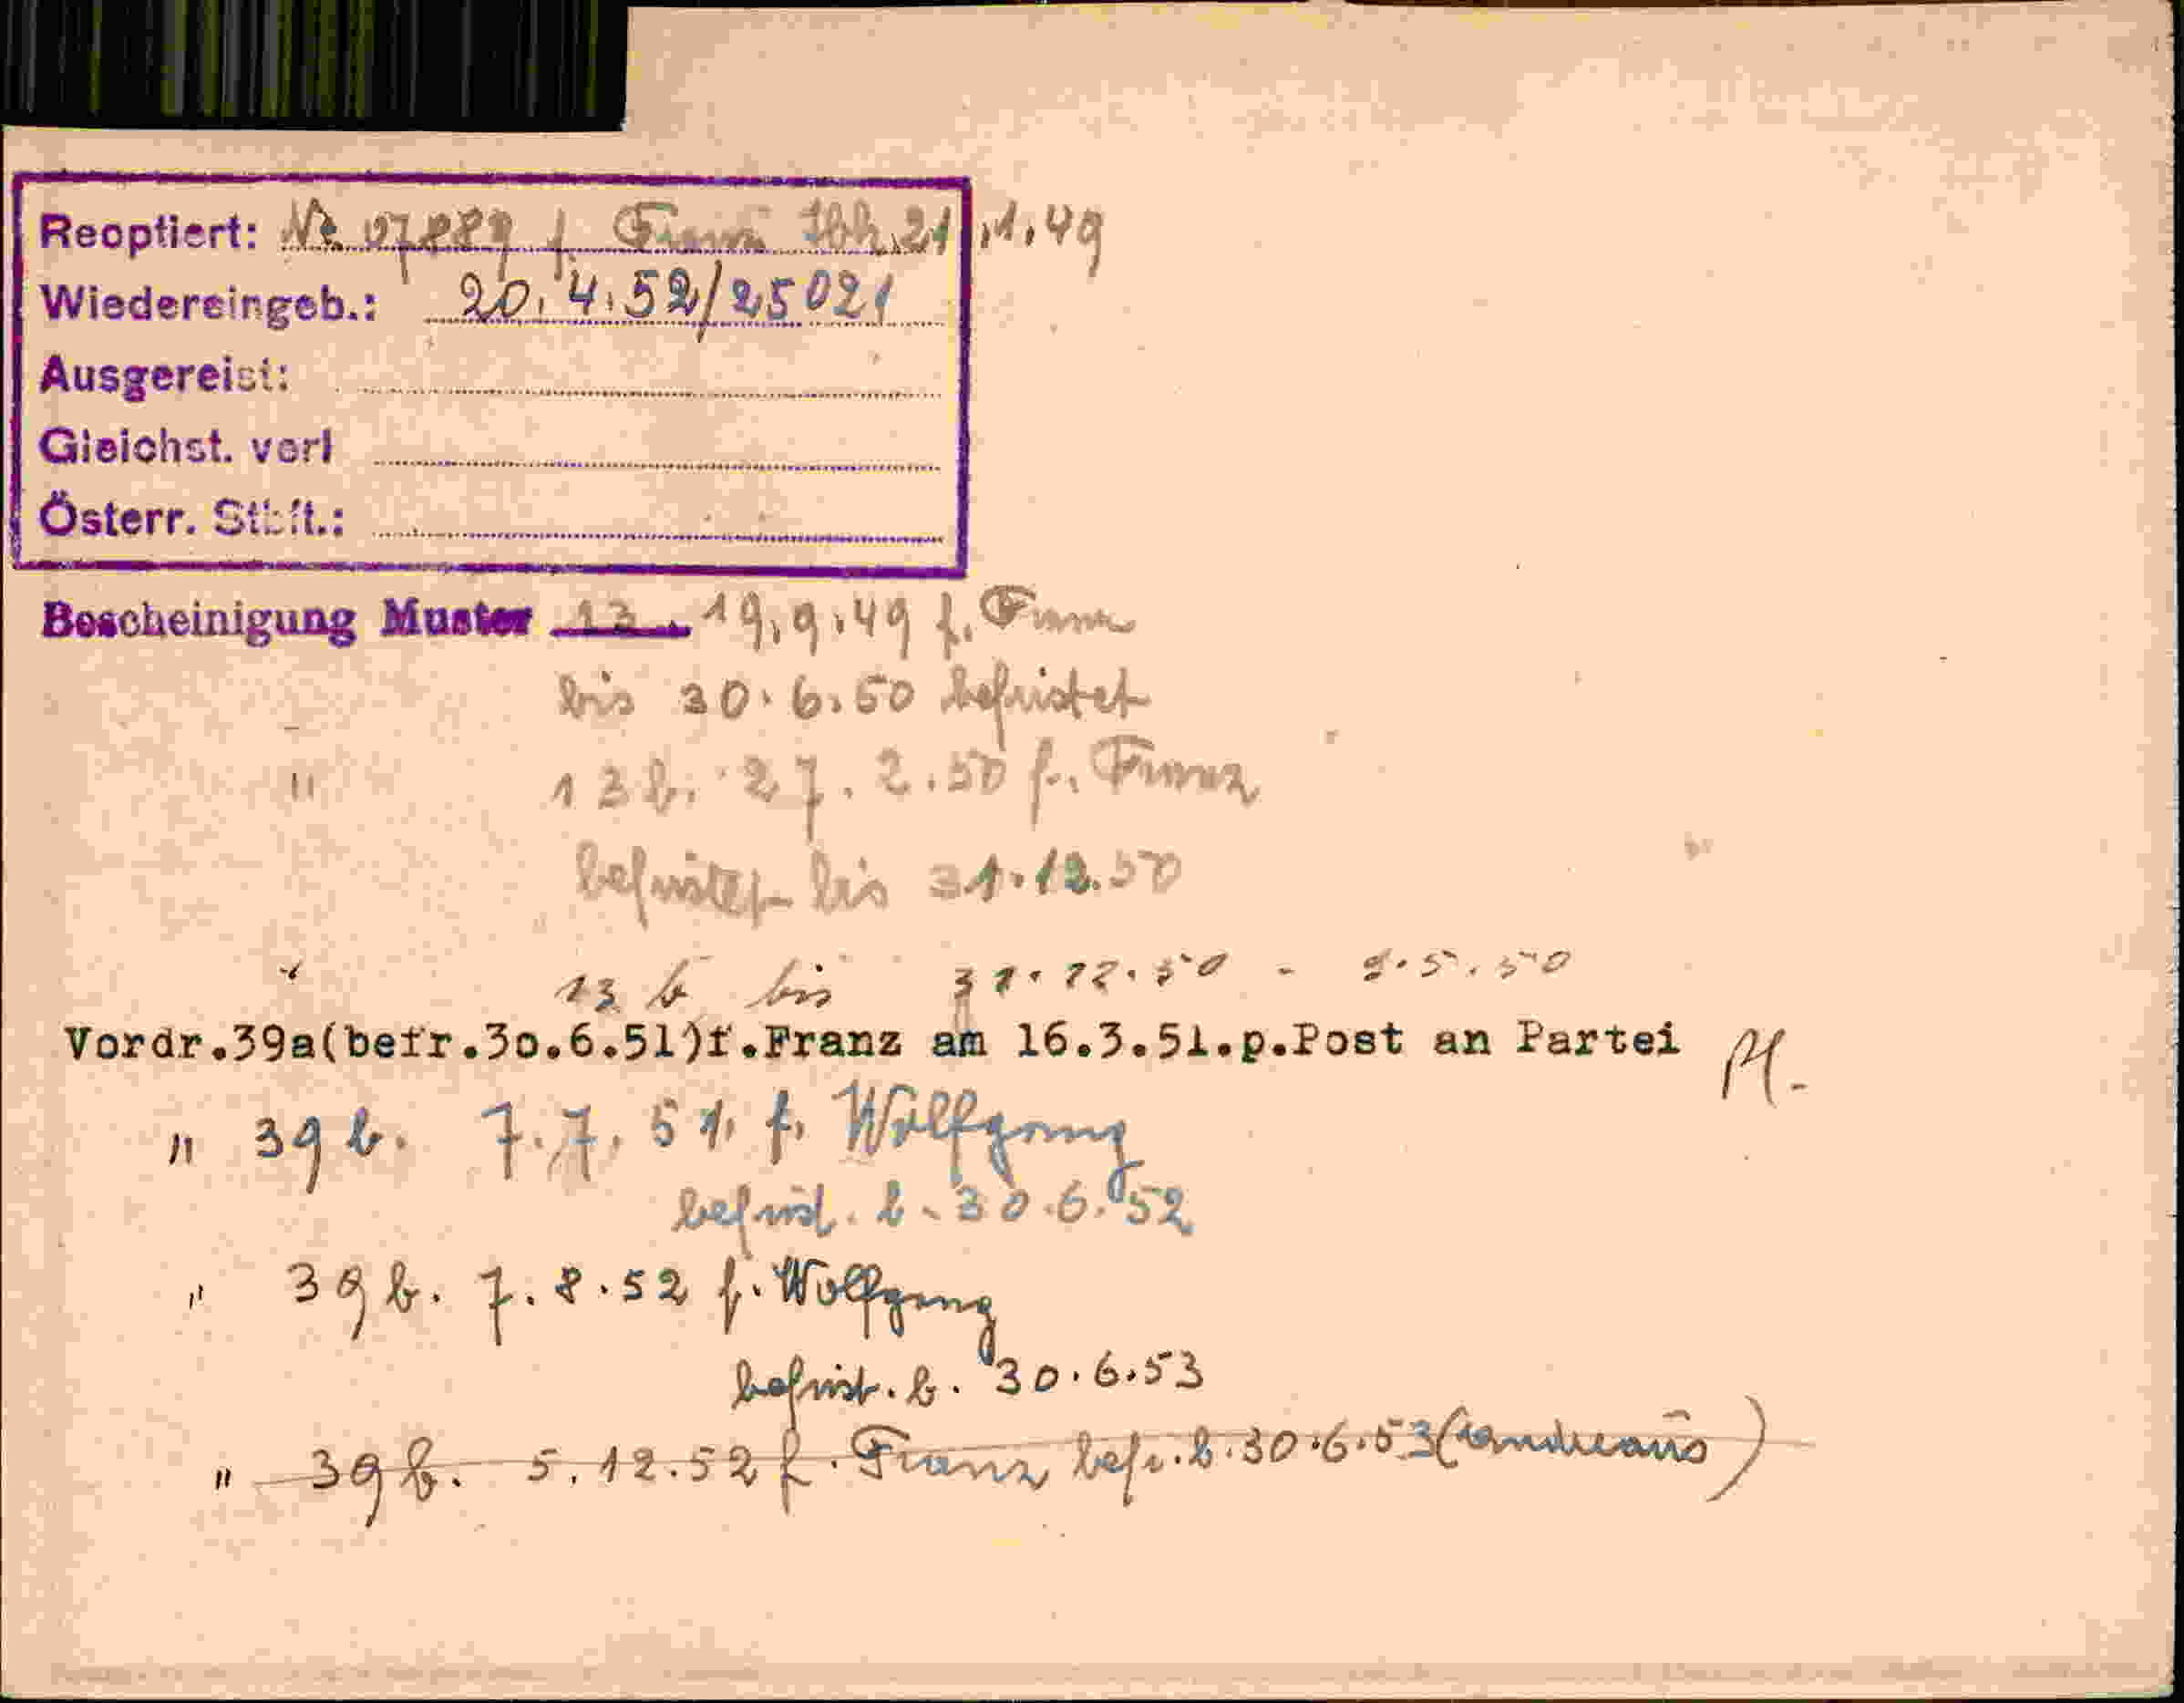 Reoptiert: Nr 07889 f Franz 21.1.49
Wiedereingeb.: 20.4.52/25021
Ausgereist:
Gleichst. verl
Österr. Stbft.:
Bescheinigung Muster 13. 19.9.49 f. Franz
bis 30.6.50 befristet
" 13 b. 27.2.50 f. Franz
befristet bis 31.12.50
" 13 b bis 31.12.50 - 9.5.50
Vordr.39a(befr.3o.6.51)f.Franz am 16.3.51.p.Post an Partei
" 39 b. 7.7.51 f. Wolfgang
befrist. b. 30.6.52
" 39 b. 7.8.52 f. Wolfgang
befrist. b. 30.6.53
" 39 b. 5.12.52 f. Franz befr. b. 30.6.53